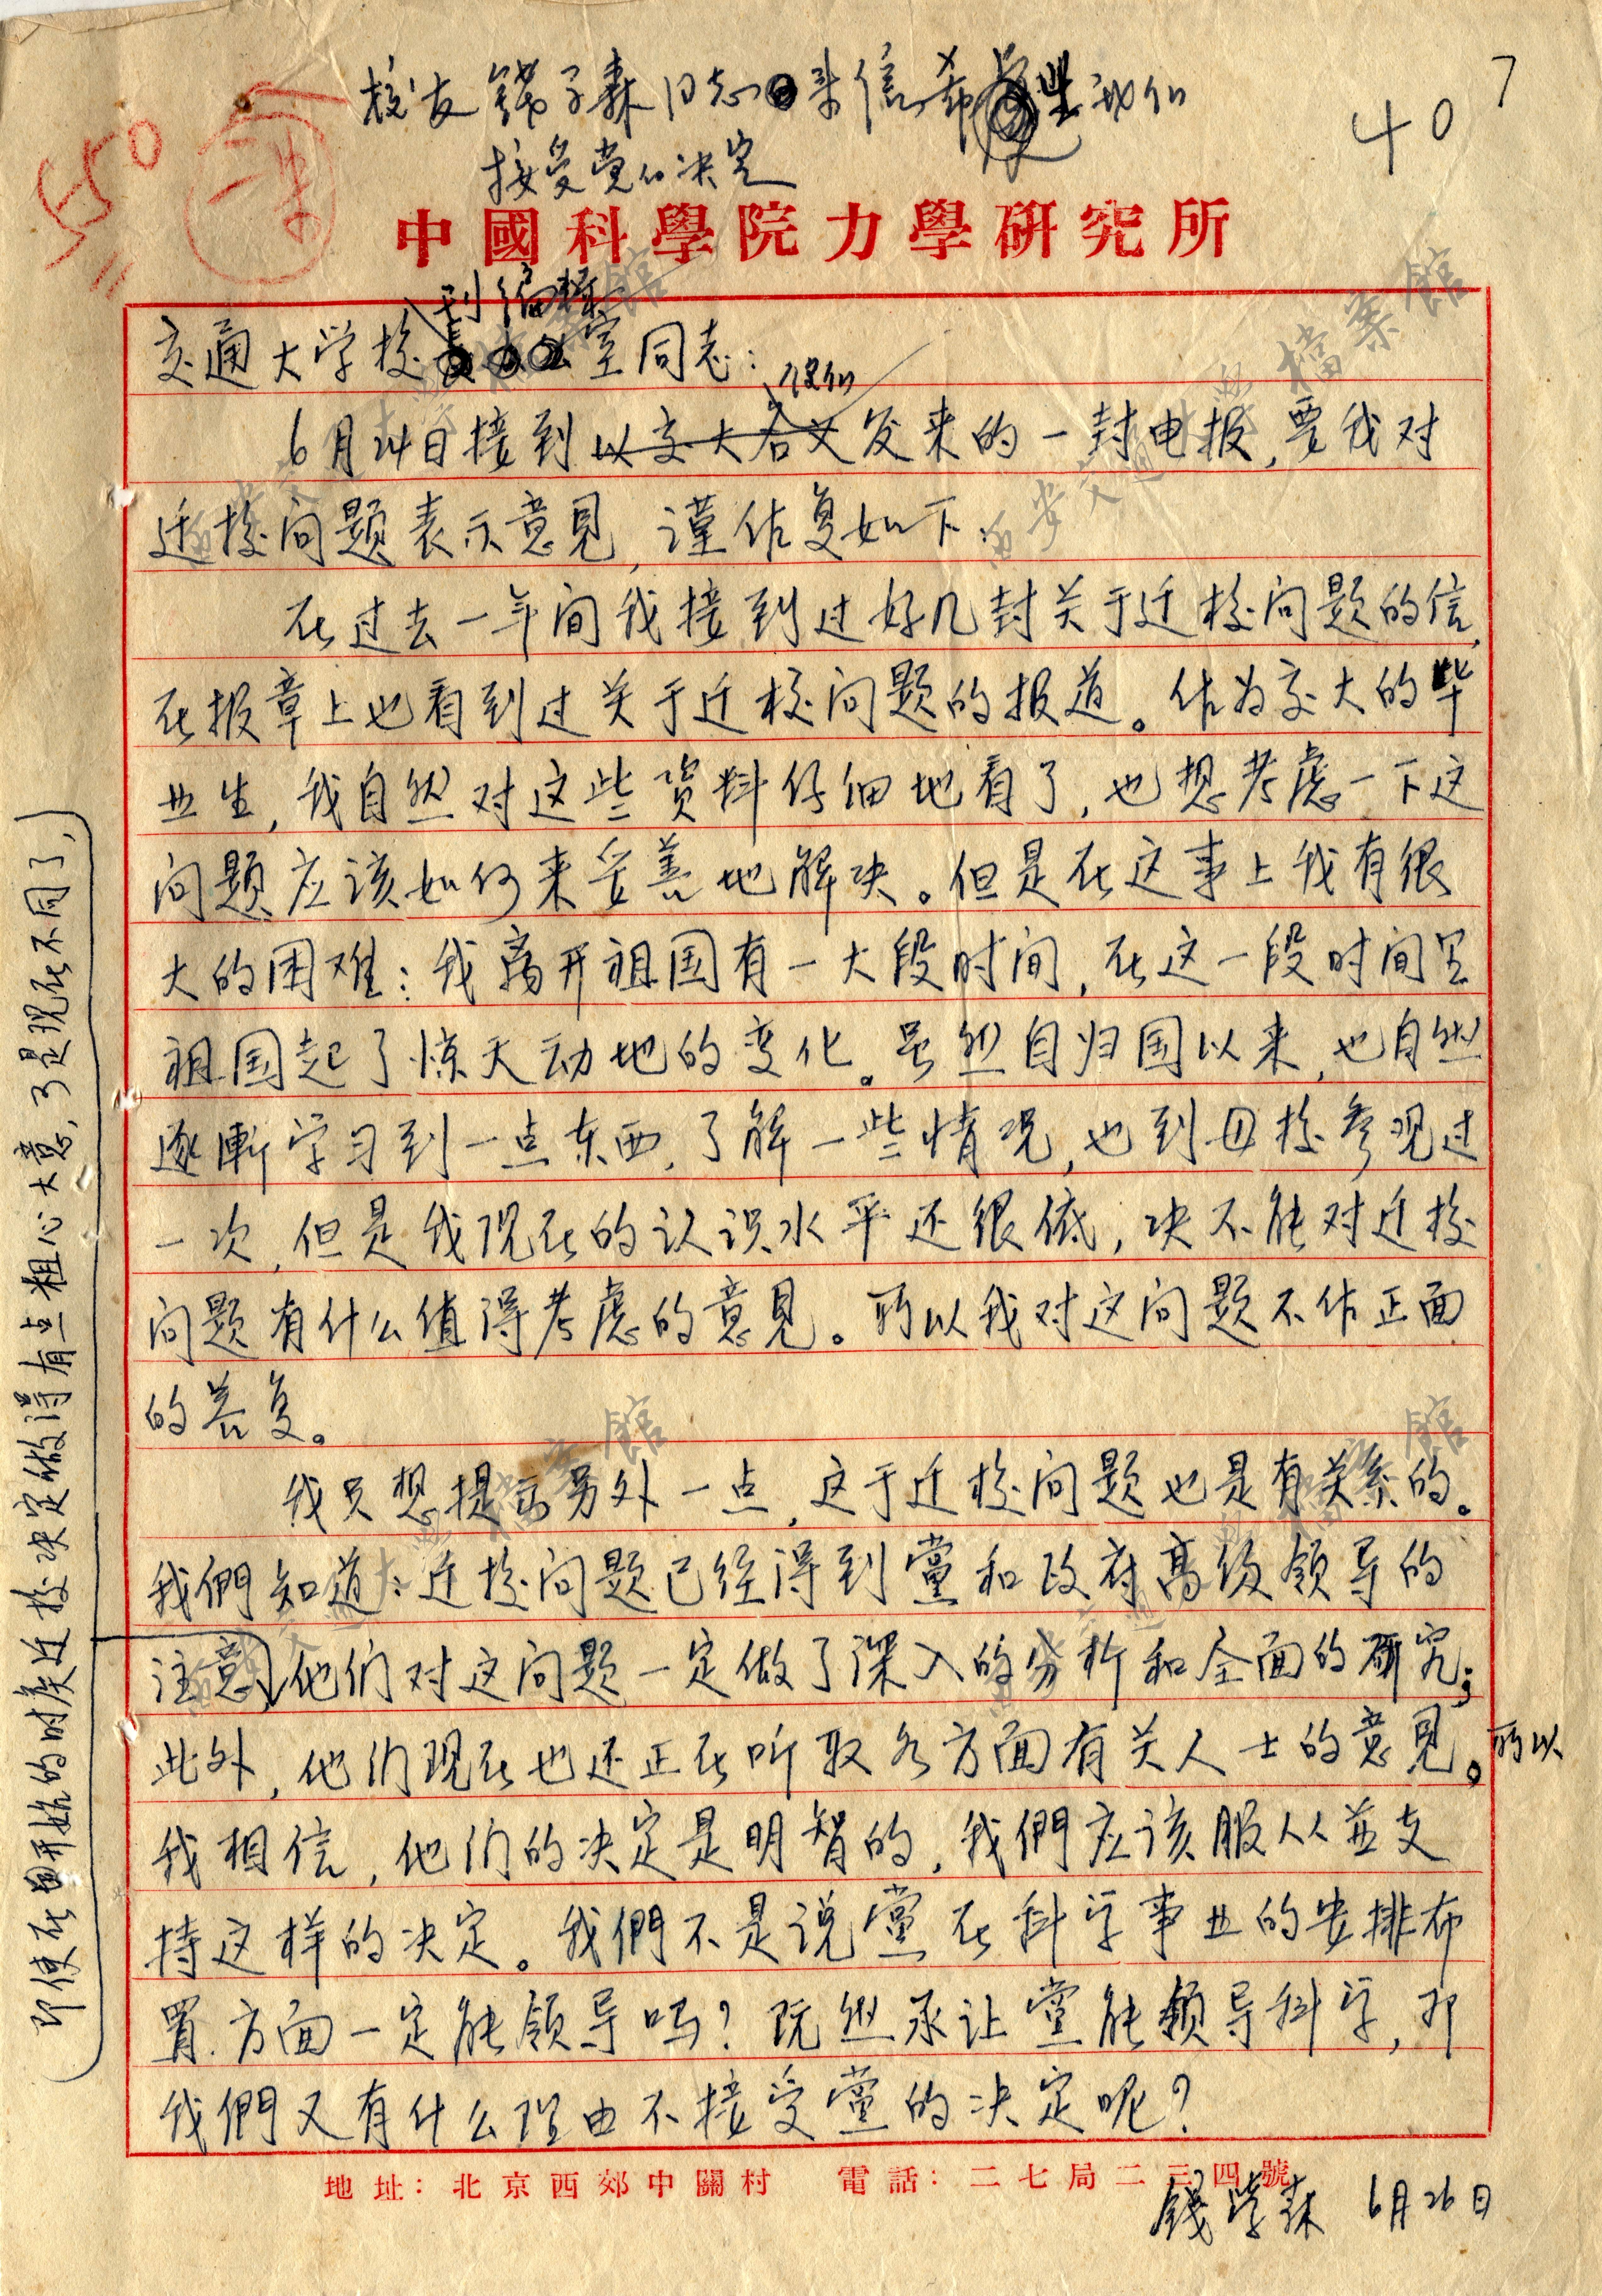 校友钱学森同志来信希望我们
接受党的决定
407
50
中國科學院力學研究所
刊编辑
交通大学校室同志:
你们
6月24日接到以交大名义发来的一封电报,要我对
迁校问题表示意見,謹佐复如下.
在过去一年间我接到过好几封关于迁校问题的信,
在报章上也看到过关于迁校问题的报道。佐为交大的毕
业生,我自然对这些资料仔细地看了,也想考慮一下这
问题应该如何来妥善地解决。但是在这事上我有很
大的困难:我离开祖国有一大段时间,在这一段时间里
祖国起了惊天动地的变化。虽然自归国以来,也自然
逐漸学习到一点东西,了解一些情况,也到母校参观过
一次,但是我现在的认识水平还很低,决不能对迁校
问题有什么值得考慮的意見。所以我对这问题不作正面
的答复。
我只想提出另外一点,这于迁校问题也是有关系的。
我們知道:迁校问题已经得到黨和政府高级领导的
注意,他们对这问题一定做了深入的分析和全面的研究;
此外,他们现在也还正在听取各方面有关人士的意見。所以
我相信,他们的决定是明智的,我們应该服从並支
持这样的决定。我們不是说黨在科学事业的安排布
置方面一定能领导吗?既然承认黨能领导科学,那
我們又有什么理由不接受黨的决定呢?
即使在开始的时侯迁校决定做得有点粗心大意,可是现在不同了,
地址:北京西郊中關村 電話:二七局二三四號
錢学森 6月26日